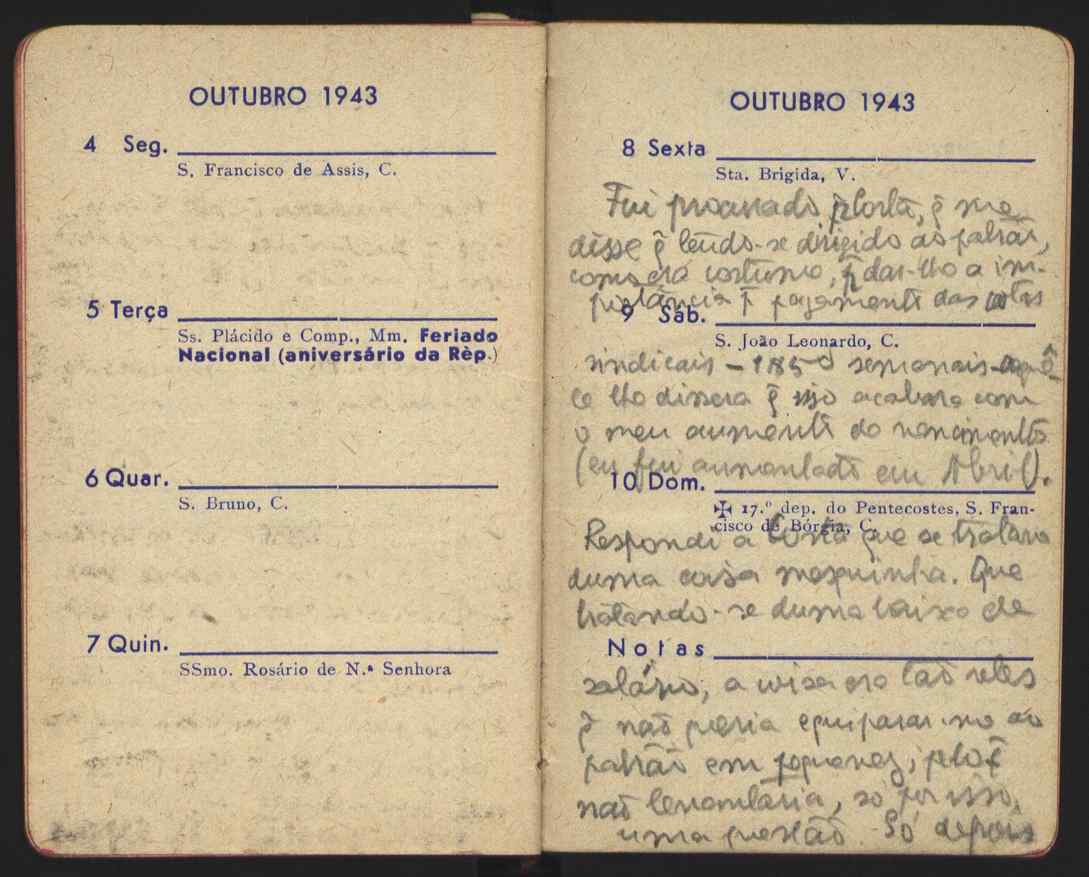 OUTUBRO 1943
4 Seg.
S. Francisco de Assis, C.
5 Terça
Ss. Plácido e Comp., Mm. Feriado
Nacional (aniversário da Rèp.)
6 Quar.
S. Bruno, C.
7 Quin.
SSmo. Rosário de N.ª Senhora
OUTUBRO 1943
8 Sexta
Sta. Brigida, V.
Fui procurado plo Costa, q̃ me
disse q̃ tendo-se dirigido ao patrão,
como era costume, p̃ dar-lho a im-
portância p̃ pagamento das cotas
9 Sáb.
S. João Leonardo, C.
sindicais - 1$85 semanais -
ce lho dissera q̃ isso acabara com
o meu aumento do vencimento
(eu fui aumentado em Abril).
10 Dom.
✠ 17.º dep. do Pentecostes, S. Fran-
cisco de Bórgia, C.
Respondi a Costa que se tratava
duma coisa mesquinha. Que
tratando-se duma baixa de
Notas
salário, a coisa era tão reles
q̃ não queria equiparar-me ao
patrão em pequenez, pelo q̃
não levantaria, só por isso,
uma questão. Só depois